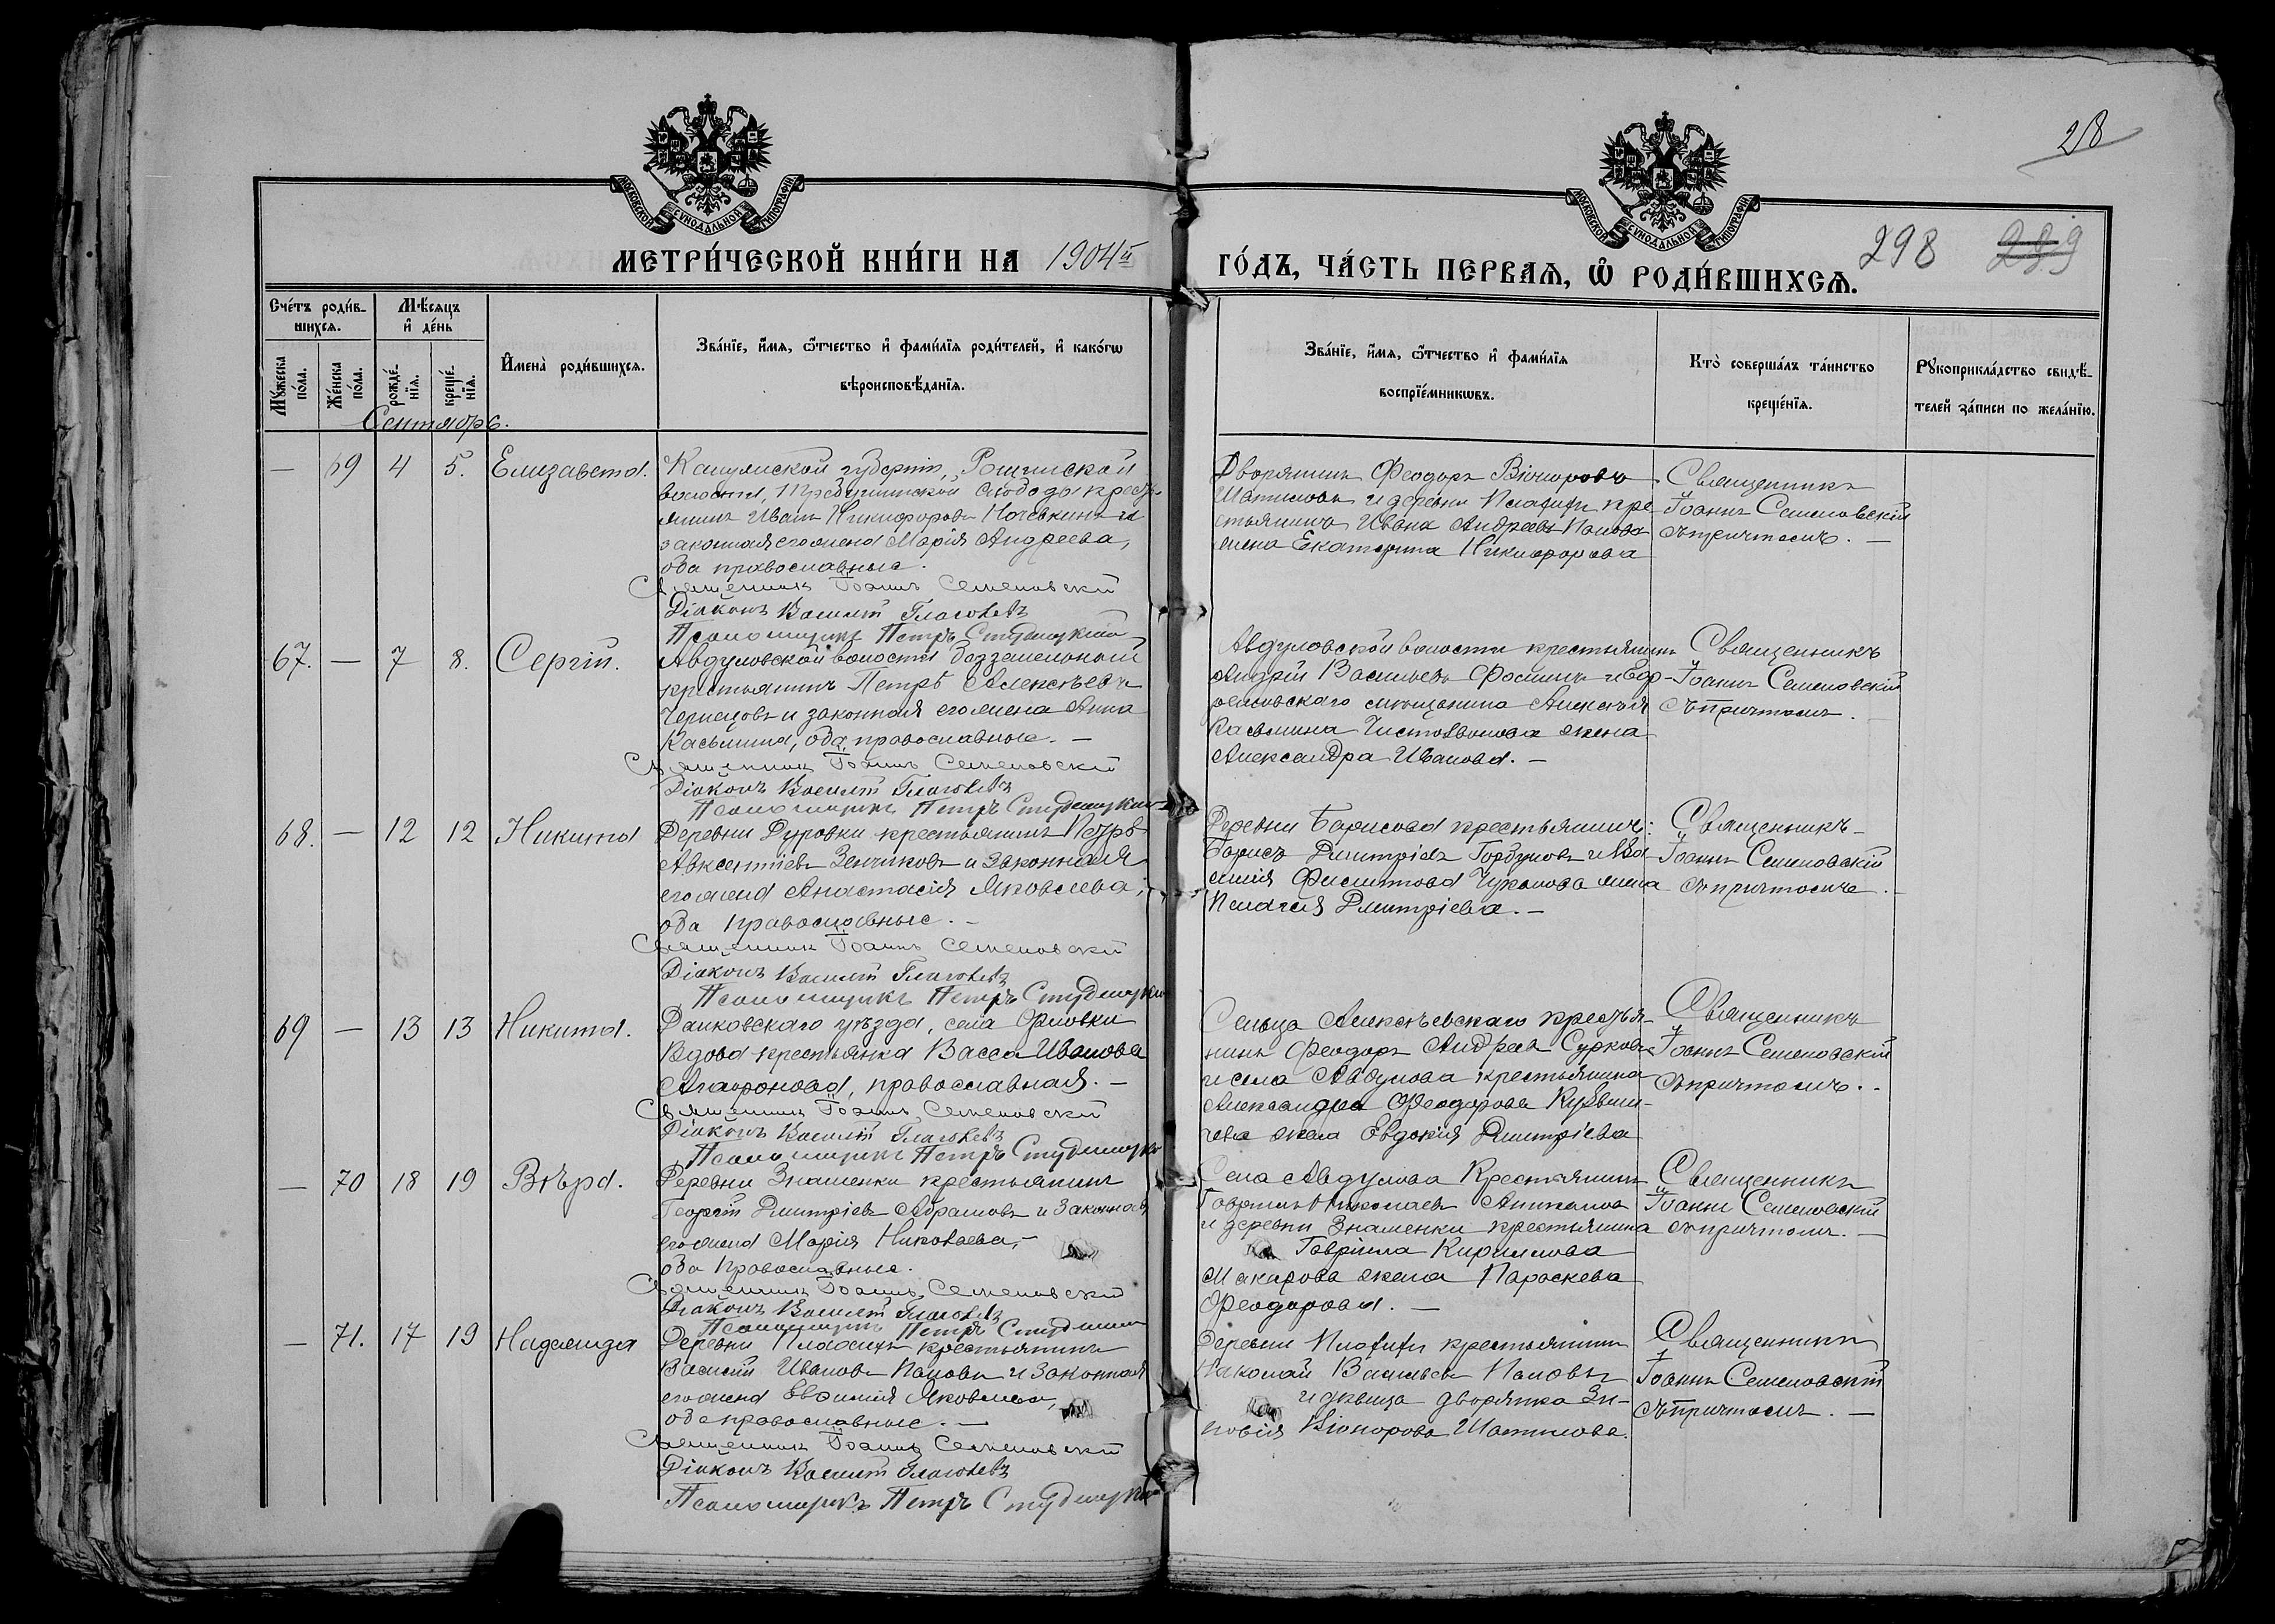 28
МОСКОВСКОЙ СѴНОДАЛЬНОЙ ТИПОГРАФІИ
МОСКОВСКОЙ СѴНОДАЛЬНОЙ ТИПОГРАФІИ
МЕТРИ́ЧЕСКОЙ КНИ́ГИ НА 1904й
ГО́ДЪ, ЧА́СТЬ ПЕРВАѦ, Ѡ҆ РОДИ́ВШИХСѦ.
298 299
Сче́тъ роди́в-
шихсѧ.
Мѣ́сяцъ
и҆ де́нь
Мꙋ́жеска
по́ла.
Же́нска
по́ла.
рожде́-
нїѧ.
креще́-
нїѧ.
И҆мена̀ роди́вшихсѧ.
Зва́нїе, и҆́мѧ, ѻ҆́тчество и҆ фами́лїѧ роди́телей, и҆ како́гѡ
вѣроисповѣ́данїѧ.
Зва́нїе, и҆́мѧ, ѻ҆́тчество и҆ фами́лїѧ
воспрїе́мникѡвъ.
Кто̀ соверша́лъ та́инство
креще́нїѧ.
Рꙋкоприкла́дство свидѣ́-
телей за́писи по жела́нїю.
Сентябрь.
— 69 4 5. Елизавета.
губерніи,
волости, слободы кресть-
янинъ Иванъ Никифоровъ и
законная его жена Марія Андреева,
оба православные.
Священникъ Іоаннъ Семеновскій
Діаконъ Василій
Псаломщикъ Петръ
Дворянинъ Феодоръ
Шатиловъ и деревни кре-
стьянина Ивана Андреева Попова
жена Екатерина Никифорова
Священникъ
Іоаннъ Семеновскій
съ причтомъ. —
67. — 7 8. Сергій.
Авдуловской волости безземельный
крестьянинъ Петръ Алексѣевъ
Чернецовъ и законная его жена Анна
Касьмина, оба православные. —
Священникъ Іоаннъ Семеновскій
Діаконъ Василій
Псаломщикъ Петръ
Авдуловской волости крестьянинъ
Андрей Васильевъ Фоминъ и
мѣщанина Алексѣя
Касьмина жена
Александра Иванова. —
Священникъ
Іоаннъ Семеновскій
съ причтомъ. —
68. — 12 12 Никита
Деревни Дуровки крестьянинъ Петръ
Авксентіевъ и законная
его жена Анастасія Яковлева,
оба православные. —
Священникъ Іоаннъ Семеновскій
Діаконъ Василій
Псаломщикъ Петръ
Деревни Борисова крестьянинъ:
Борисъ Дмитріевъ Горбуновъ и
жена
Пелагея Дмитріева. —
Священникъ
Іоаннъ Семеновскій
съ причтомъ. —
69 — 13 13 Никита.
Данковскаго уѣзда, села Орловки
Вдова крестьянка Васса Иванова
Агафонова, православная. —
Священникъ Іоаннъ Семеновскій
Діаконъ Василій
Псаломщикъ Петръ
Сельца Алексѣевскаго крестья-
нинъ Феодоръ Андреевъ Сурковъ
и села Авдулова крестьянина
Александра Феодорова
жена Евдокія Дмитріева
Священникъ
Іоаннъ Семеновскій
съ причтомъ. —
— 70 18 19 Вѣра.
Деревни Знаменки крестьянинъ
Георгій Дмитріевъ Абрамовъ и законная
его жена Марія Николаева, —
оба православные.
Священникъ Іоаннъ Семеновскій
Діаконъ Василій
Псаломщикъ Петръ
Села Авдулова Крестьянинъ
Гавріилъ Николаевъ
и деревни Знаменки крестьянина
Гавріила Кириллова
Макарова жена Параскева
Феодорова. —
Священникъ
Іоаннъ Семеновскій
съ причтомъ. —
— 71. 17 19 Надежда
Деревни крестьянинъ
Василій Ивановъ Поповъ и законная
его жена Евфимія Яковлева,
оба православные. —
Священникъ Іоаннъ Семеновскій
Діаконъ Василій
Псаломщикъ Петръ
Деревни крестьянинъ
Николай Васильевъ Поповъ
и дѣвица дворянка Зи-
новія Шатилова.
Священникъ
Іоаннъ Семеновскій
съ причтомъ. —